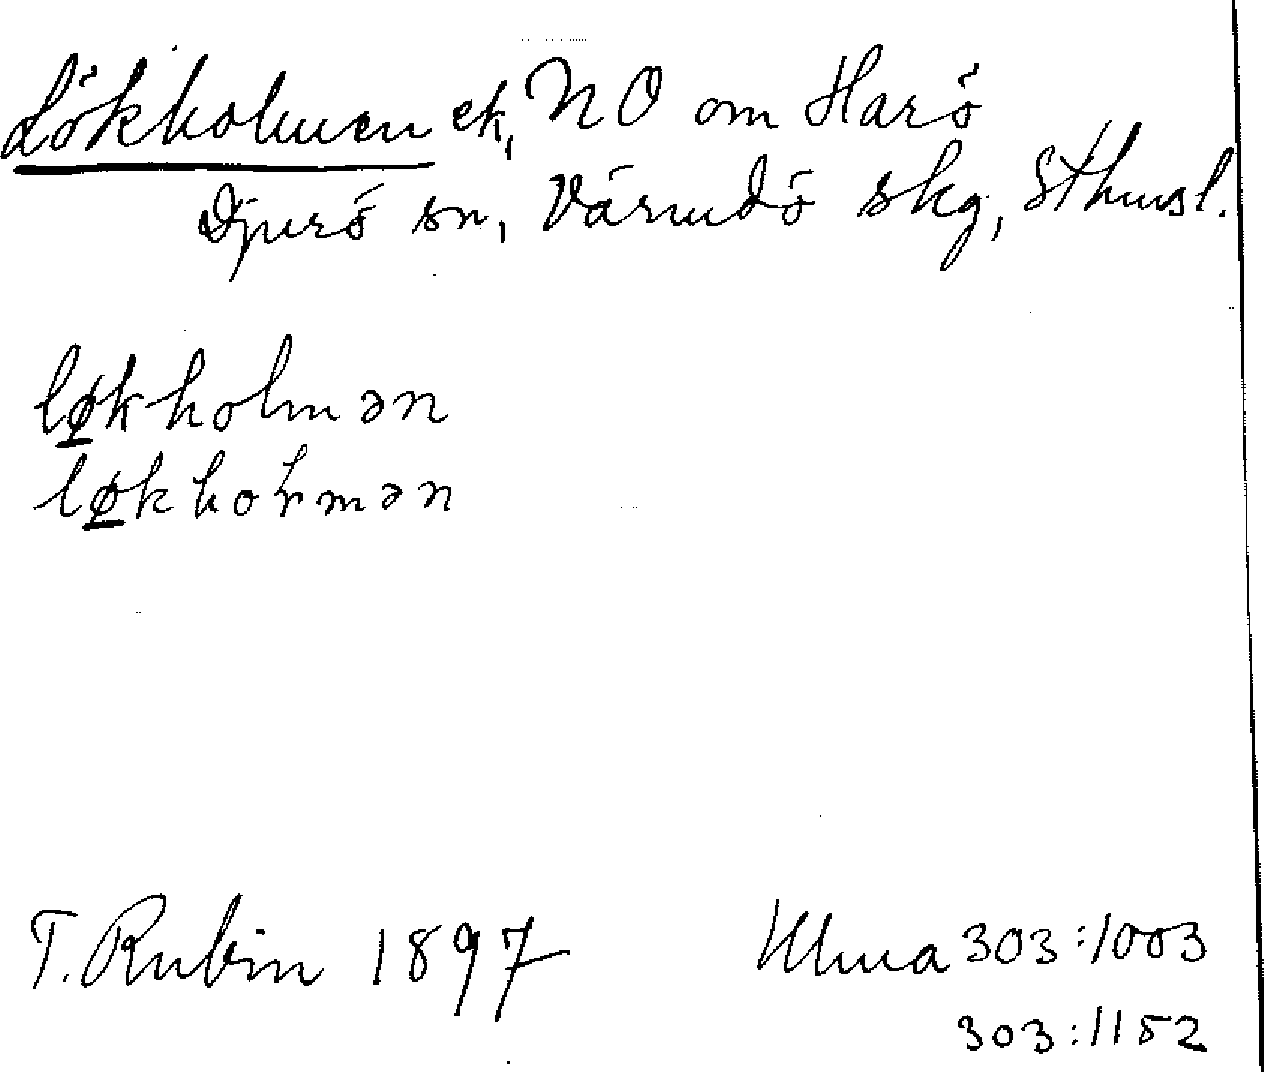 Lökholmen ek, NO om Harö
Djurö sn, Värmdö skg, Sthmsl.
løkholmən
løkhoɫmən
T. Rubin 1897
Ulma 303:1003
303:1152